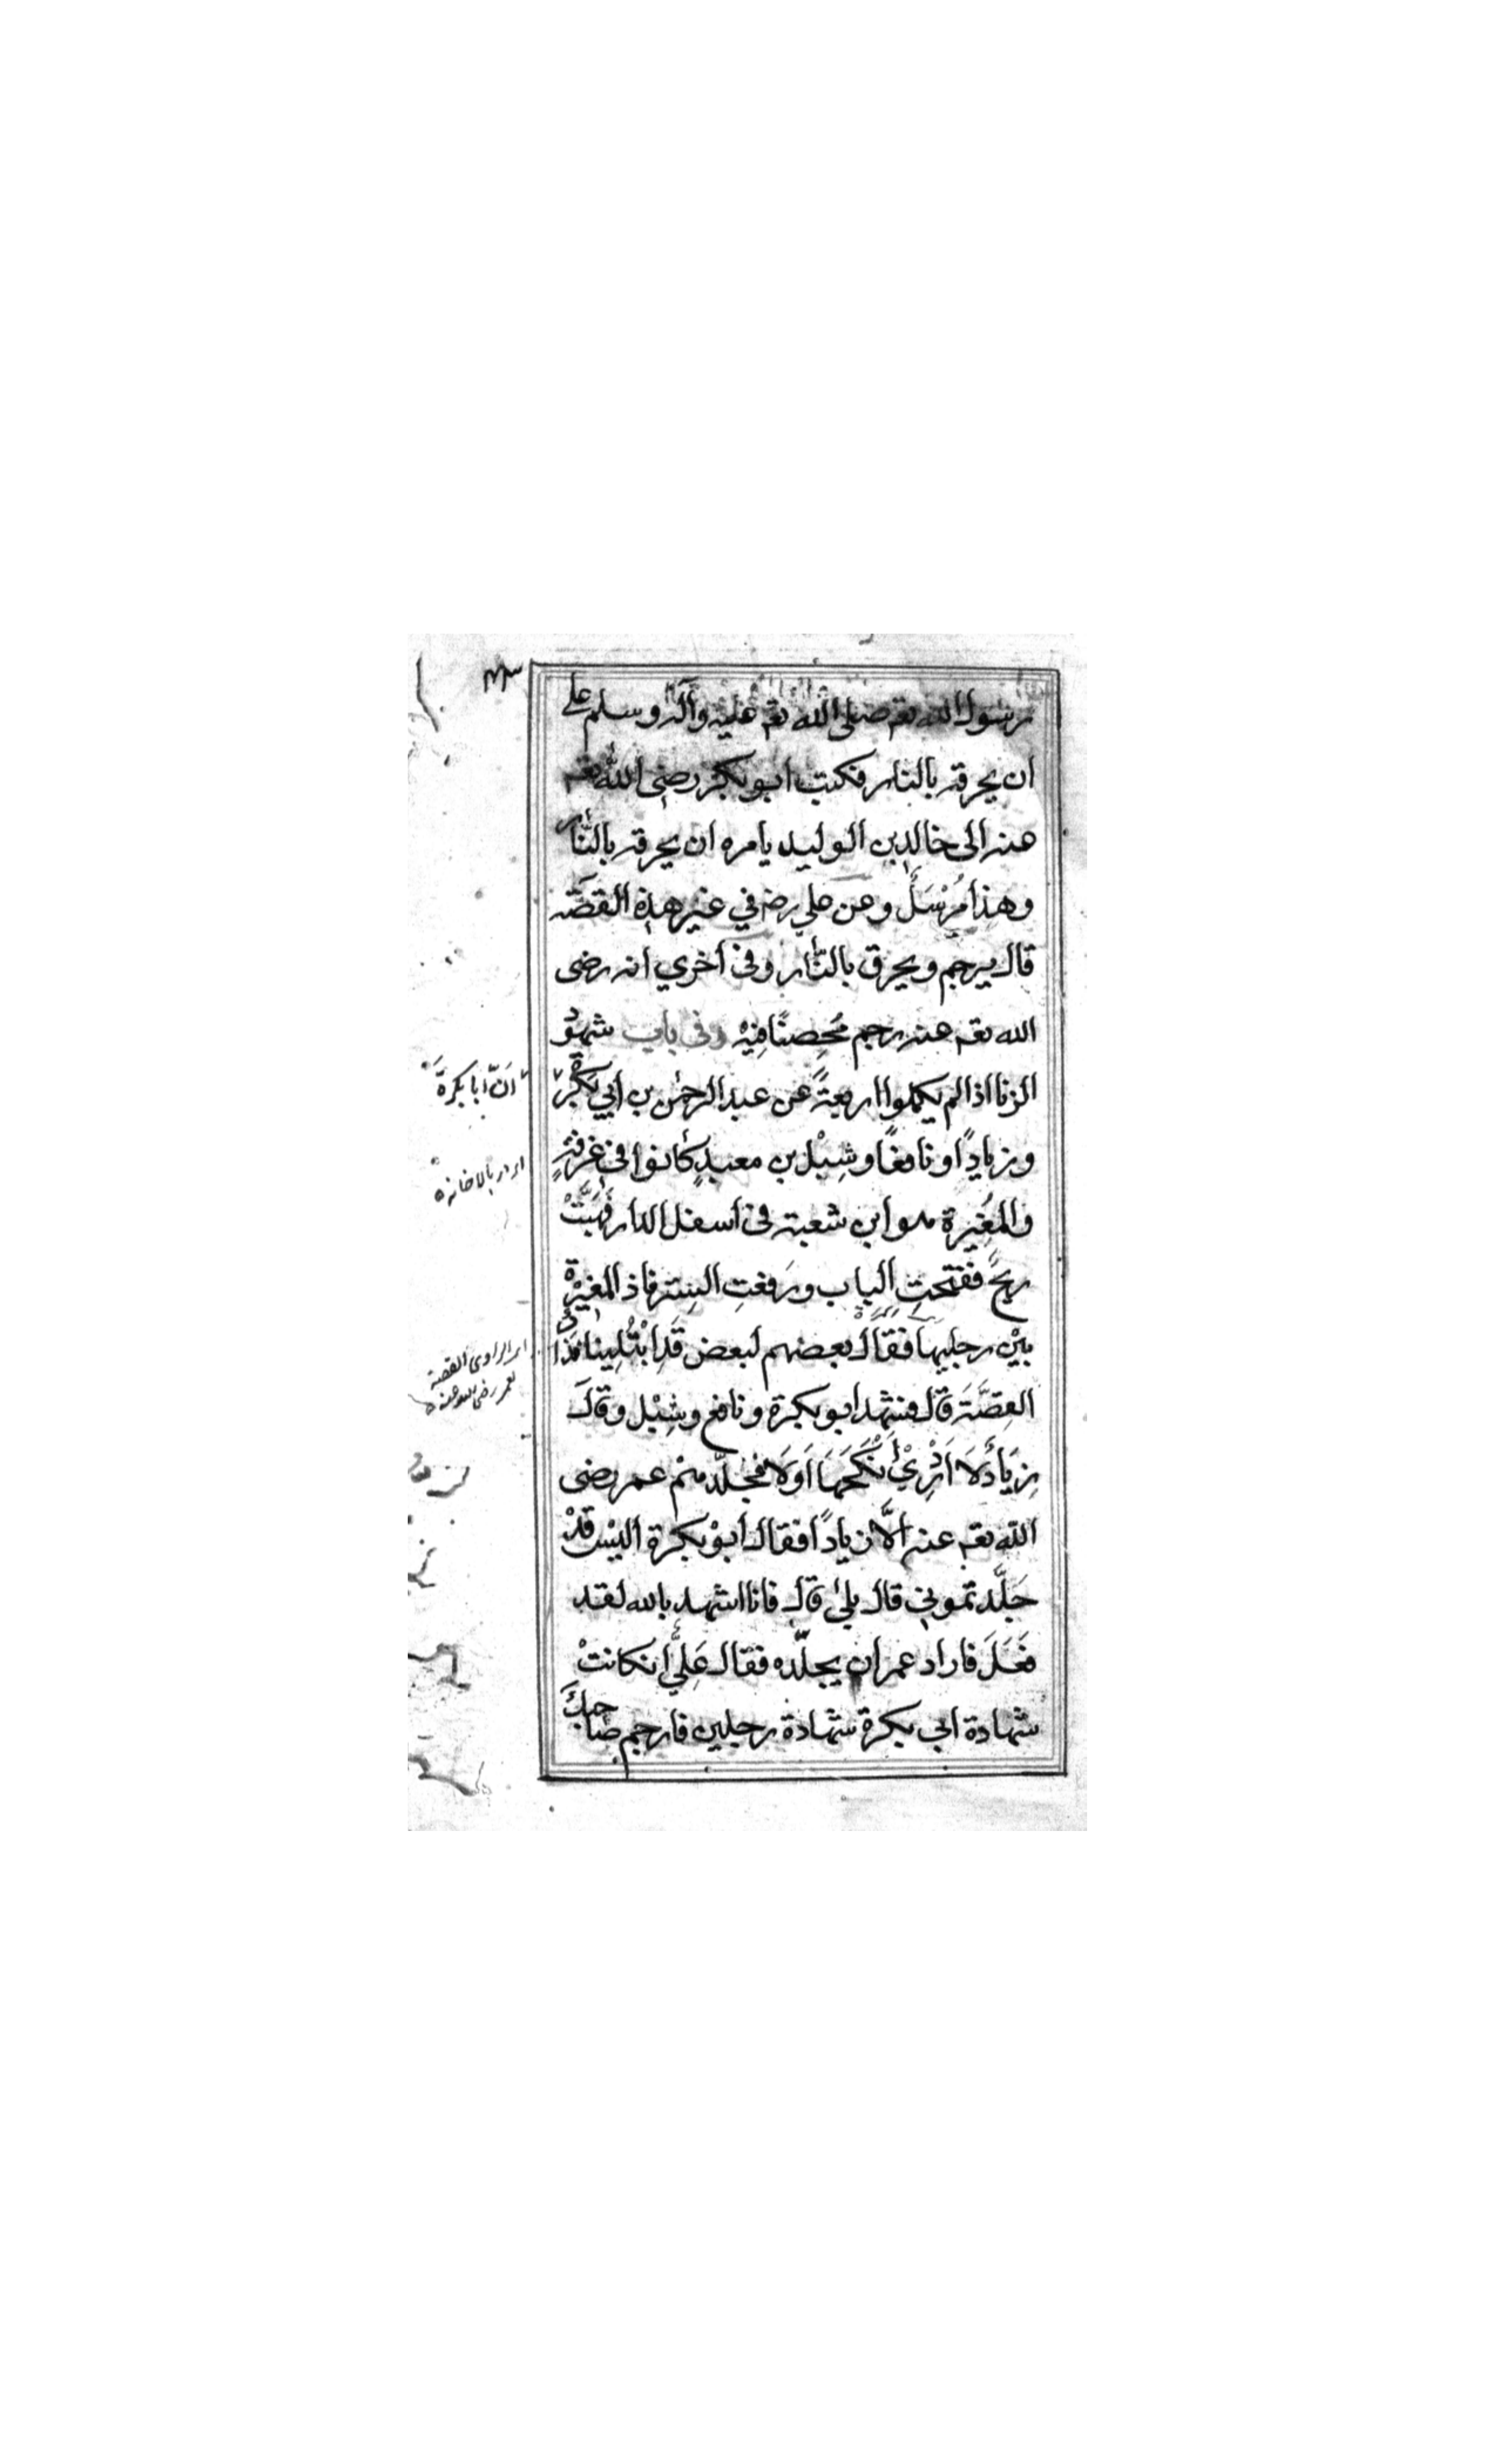 رسول الله تعہ صلى الله تعہ عليه وآله وسلم على
ان يحرقه بالنار فكتب ابو بكر رضى الله تعہ
عنه الى خالد بن الوليد يامره ان يحرقه بالنّار
وهذا مُرْسَلٌ وعن علي رضہ في غير هذه القصّة
قال يرجم ويحرق بالنّار وفى اخري انه رضى
الله تعہ عنه رجم مُحصِنًا فِيْهِ وفى باب شهود
الزنا اذا لم يكملوا اربعةً عن عبد الرحمٰن بن ابي بَكْرَة
وزيادًا ونافعًا وشِبْل بن معبدٍ كانوا في غرفةٍ
والمُغِيرة هو ابن شعبة فى اسفل الدار فَهَبَّتْ
ريحٌ ففتحتِ الباب ورَفعتِ السِتر فاذ المغيْرة
بيْن رجليها فقَال بعضهم لبعض قَدِ ابْتُلِينا فذكر
القِصّةَ قال فشهد ابو بكرة ونافع وشِبْل وقال
زِيَادٌ لَا اَدْرِيْ اَنَكَحَهَا اَوْ لَا فجلّدهم عمر رضى
الله تعہ عنه الَّا زيادًا فقال ابوْ بكرة اليْس قدْ
جَلَّدتموني قال بلىٰ قال فانا اشهد بالله لقد
فَعَلَ فاراد عمر ان يجلّده فقال عَلِيٌّ ان كانتْ
شهادة ابي بكرة شهادة رجلين فارجم صاحبكَ
اَنّ ابا بكرة
بالاخانه
الراوى القصة
لعمر رضى الله عنه